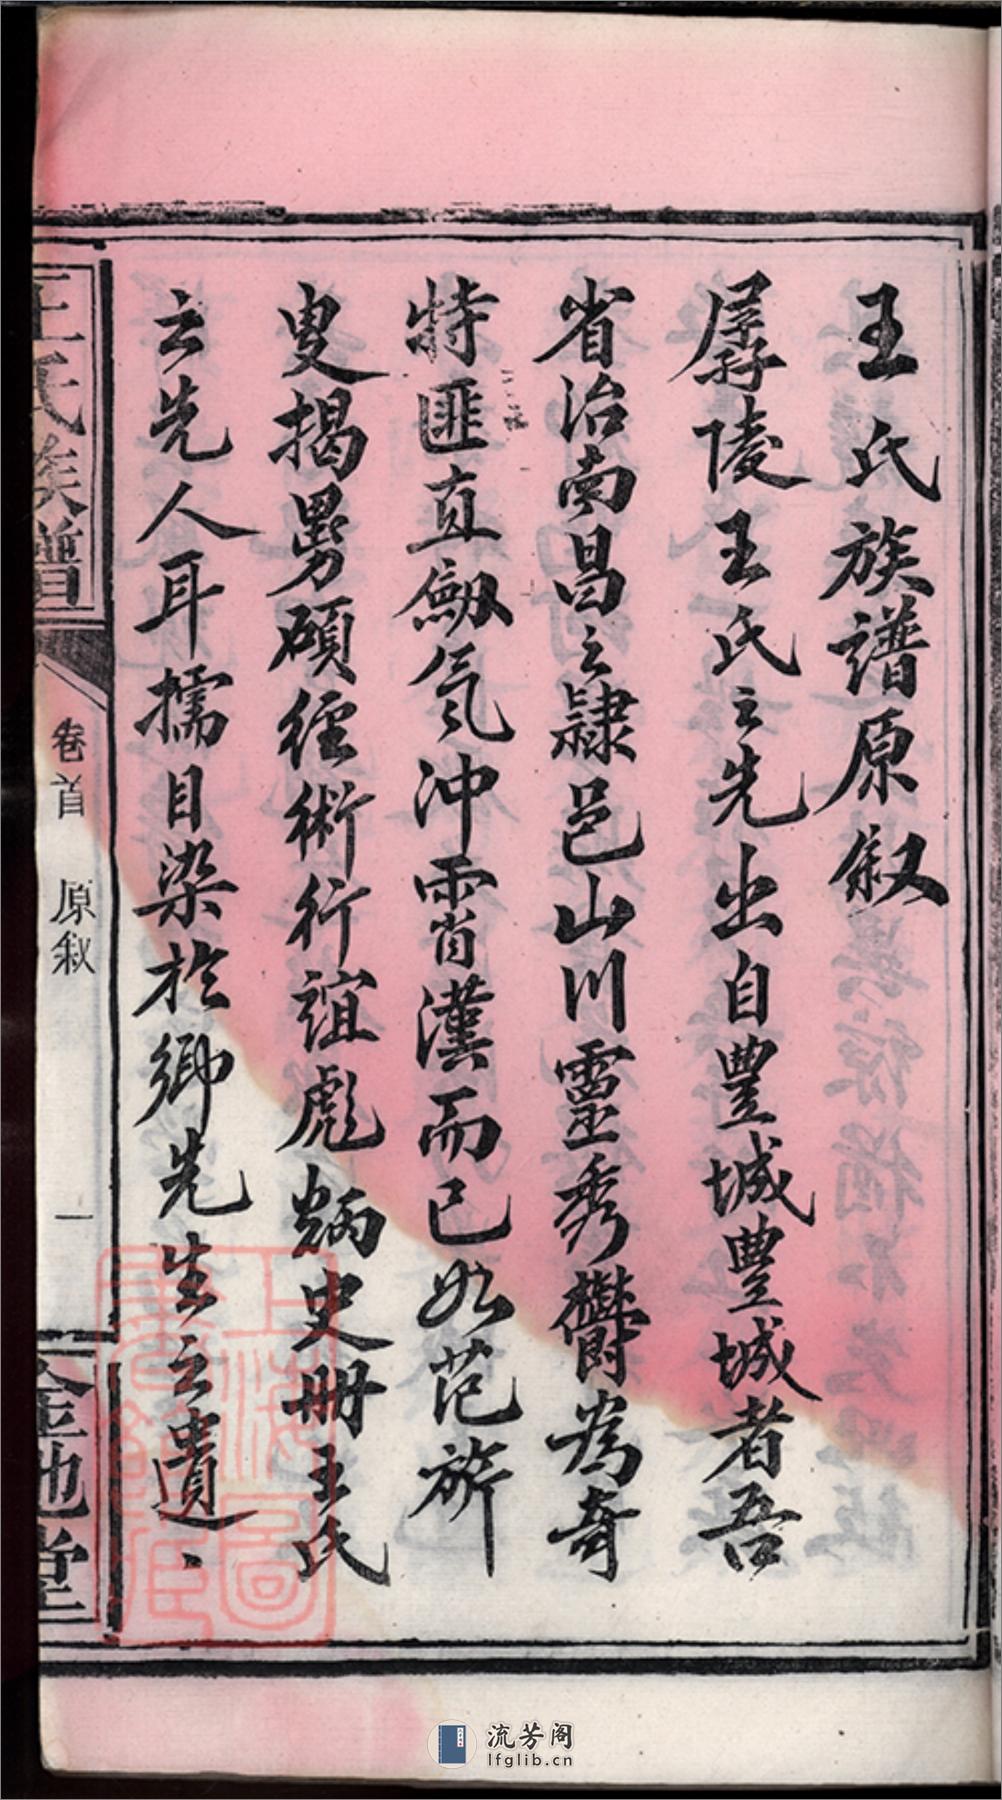 王氏族譜原叙
孱陵王氏之先出自豐城豐城者吾
省治南昌之隸邑山川靈秀鬱為奇
特匪直劔氣沖霄漢而已如范旂
叟揭曼碩經術行誼彪炳史冊王氏
之先人耳擩目染於鄉先生之遺
王氏族譜
卷首 原敘 一
金池堂
上海圖書館藏
流芳阁
lfglib.cn